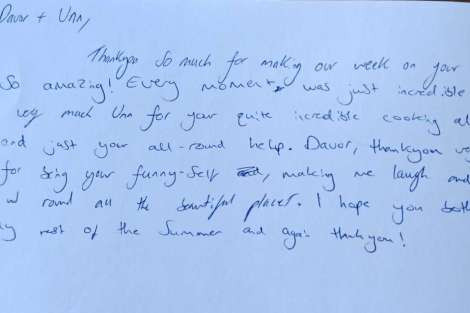 Davor + Unn,
Thankyou so much for making our week on your
So amazing! Every moment was just incredible
very much Unn for your quite incredible cooking al
and just your all-round help. Davor, thankyou ve
for being your funny-self, making me laugh and
round all the beautiful places. I hope you both
rest of the Summer and again thankyou!